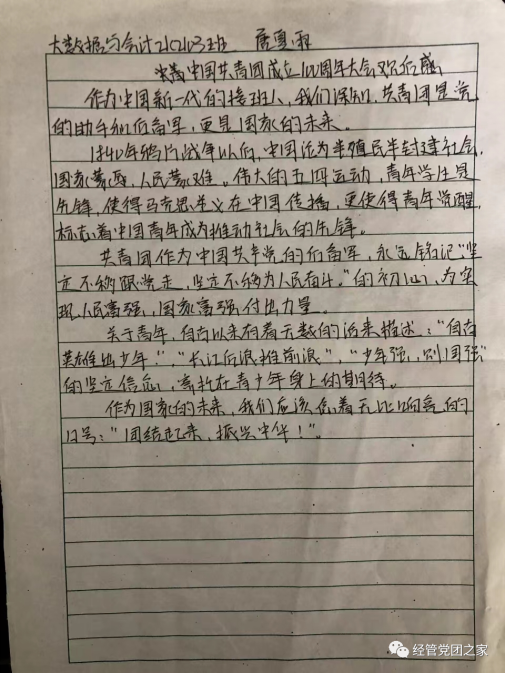 大数据与会计210203班 唐夏雨
中国共青团成立100周年大会观后感
作为中国新一代的接班人,我们深知,共青团是党
的助手和后备军,更是国家的未来。
1840年鸦片战争以后,中国沦为半殖民半封建社会,
国家蒙辱,人民蒙难。伟大的五四运动,青年学生是
先锋,使得马克思主义在中国传播,更使得青年觉醒,
标志着中国青年成为推动社会的先锋。
共青团作为中国共产党的后备军,永远铭记"坚
定不移跟党走,坚定不移为人民奋斗。"的初心,为实
现人民富强,国家富强付出力量。
关于青年,自古以来有着无数的词来描述:"自古
英雄出少年!","长江后浪推前浪","少年强,则国强"
的坚定信念,寄托在青少年身上的期待。
作为国家的未来,我们应该怀着无比响亮的
口号:"团结起来,振兴中华!"。
经管党团之家